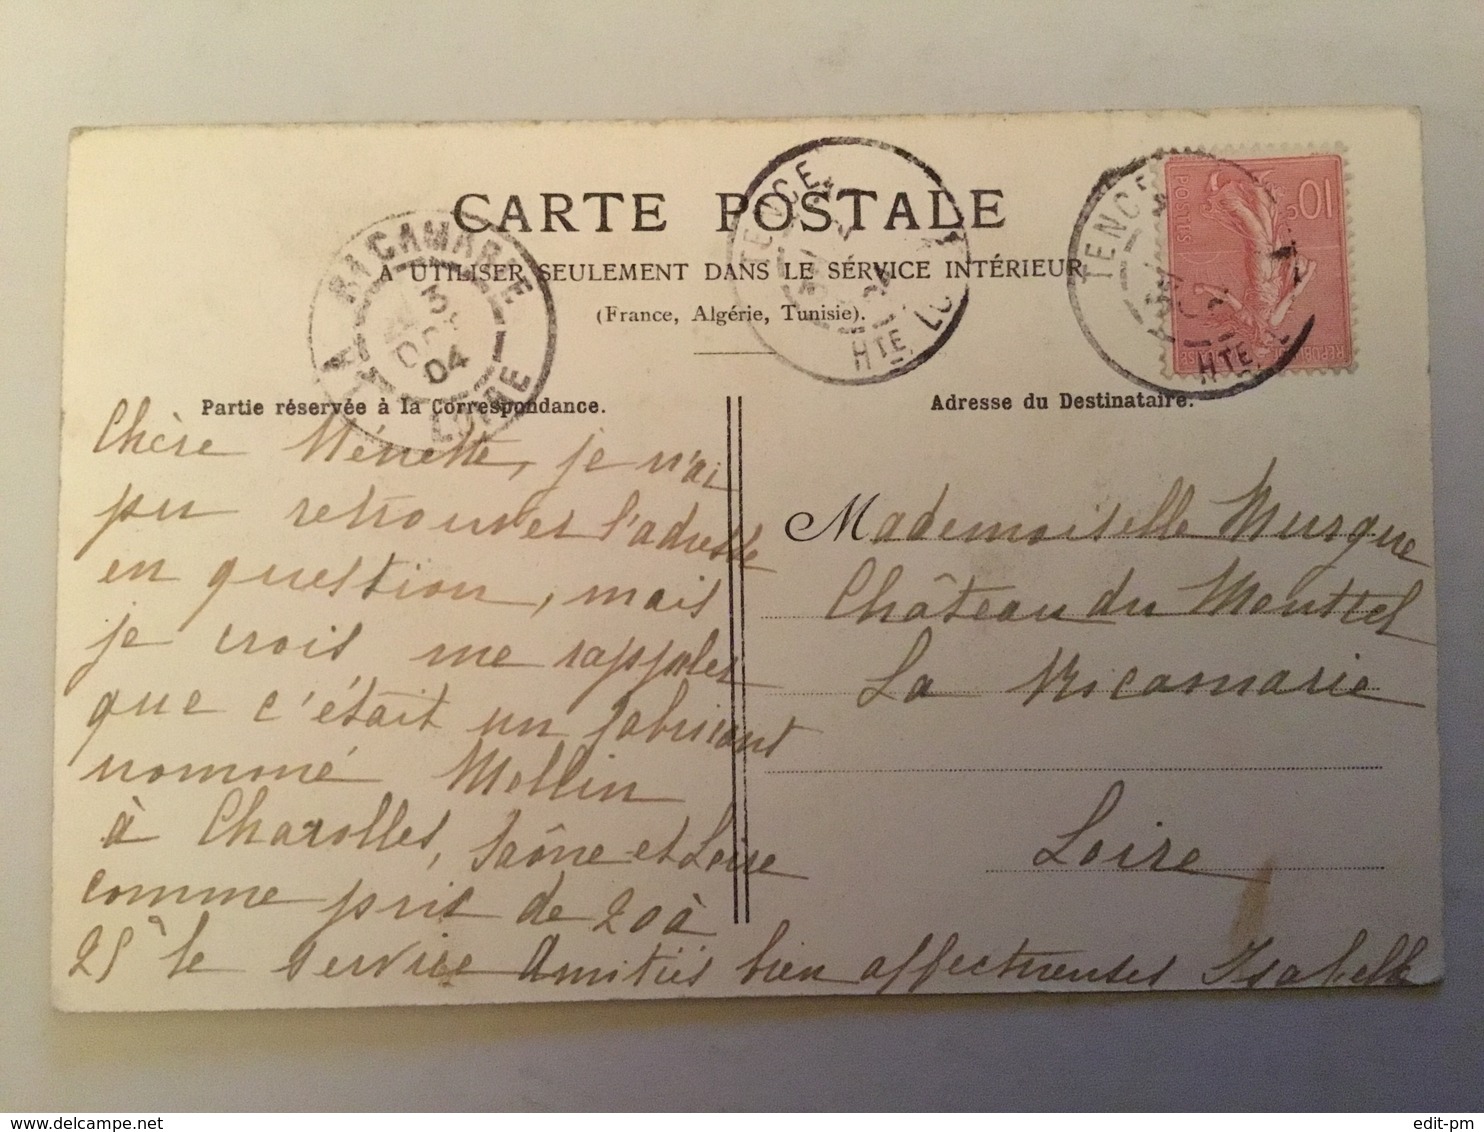 CARTE POSTALE
A UTILISER SEULEMENT DANS LE SERVICE INTÉRIEUR
(France, Algérie, Tunisie).
LA RICAMARIE
3
04
LOIRE
TENCE
HTE LO
TENCE
HTE L
10c
POSTES
Partie réservée à la Correspondance.
Chère Ménette, je n'ai
pu retrouver l'adresse
en question, mais
je crois me rappeler
que c'était un fabricant
nommé Mollin
à Charolles, Saône et Loire
comme prix de 20 à
25 le service Amitiés bien affectueuses Isabelle
Adresse du Destinataire.
Mademoiselle Mursque
Château du Monttel
La Ricamarie
Loire
edit-pm